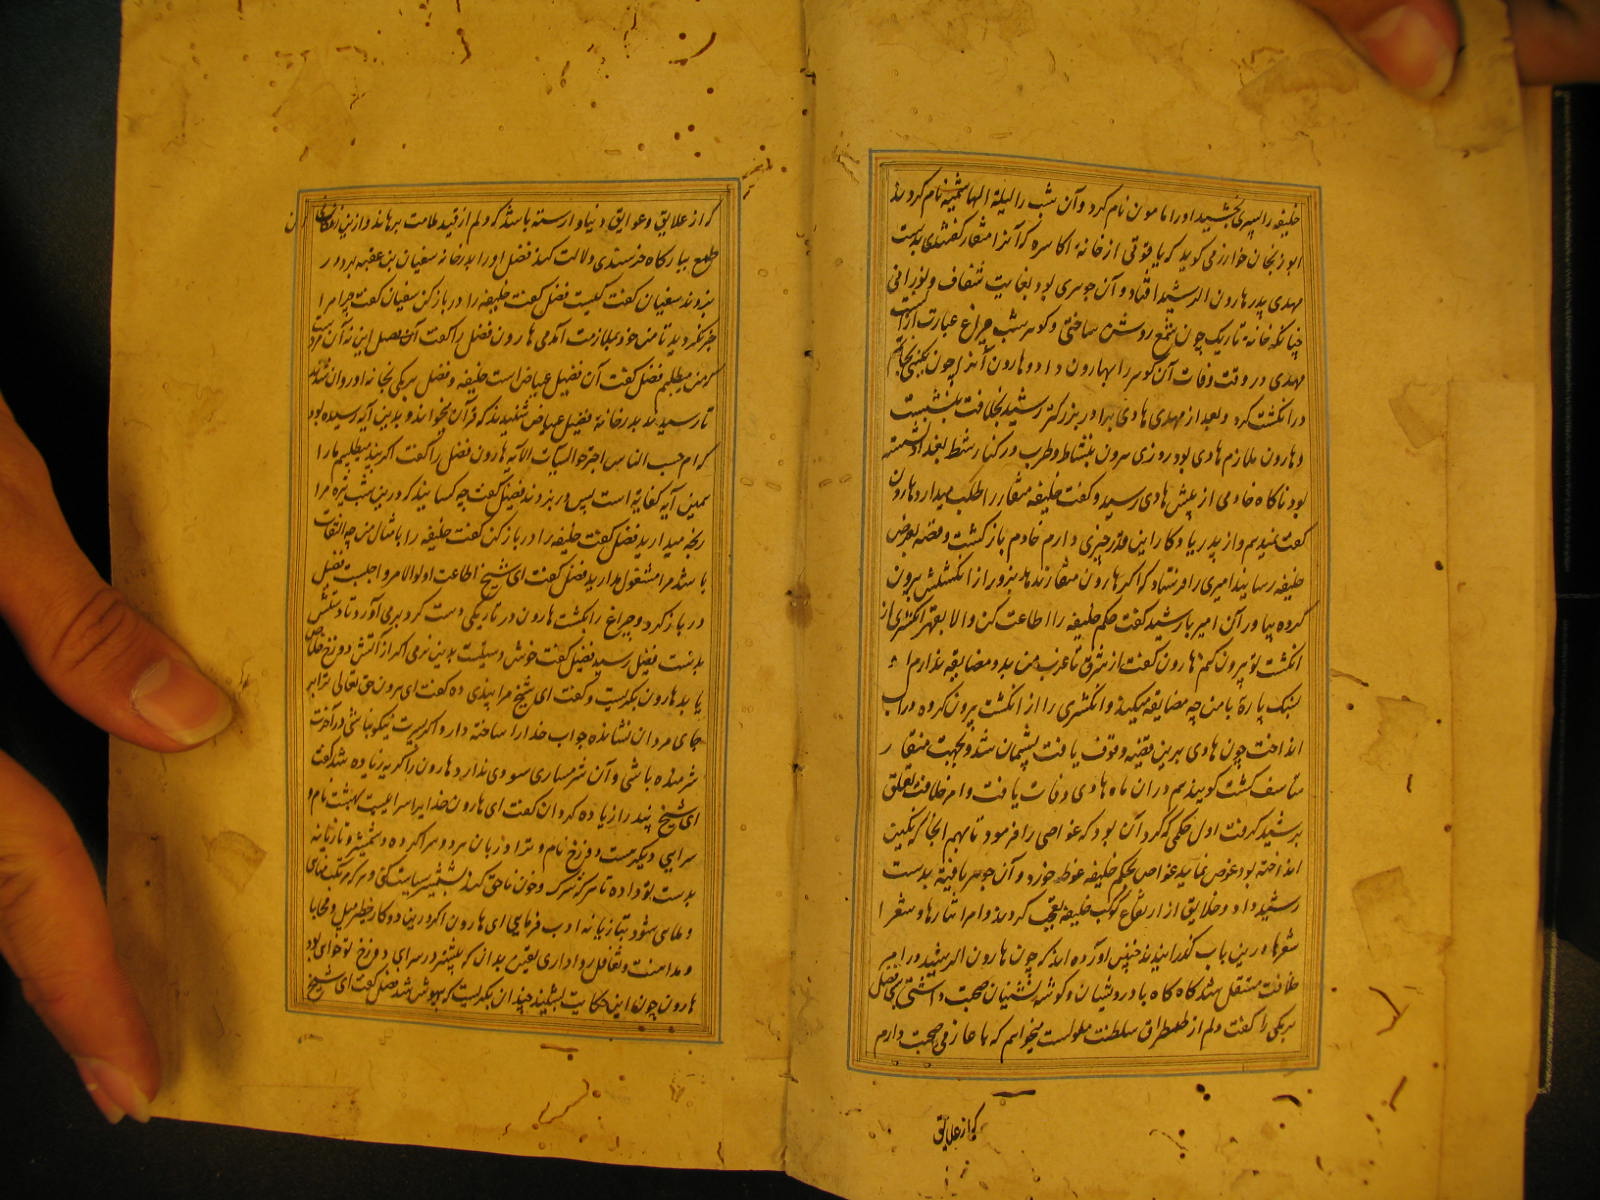 خلیفه را پسری بخشید او را مامون نام کرد و آن شب را لیلة الهاشمیه نام کردند
ابو ریحان خوارزمی کوید که یاقوتی از خانهٔ اکاسره که آنرا منقار کفتندی بدست
مهدی پدر هارون الرشید افتاد و آن جوهری بود بغایت شفاف و نورانی
چنانکه خانهٔ تاریک چون شمع روشن ساختی و کوهر شب چراغ عبارت از آنست
مهدی در وقت وفات آن کوهر را بهارون داد و هارون آنرا چون نکینی بخاتم
در انکشت کرد و بعد از مهدی هادی برادر بزرکتر رشید بخلافت بنشست
و هارون ملازم هادی بود روزی هرون بنشاط و طرب در کنار شط بغداد نشسته
بود ناکاه خادمی از پیش هادی رسید و کفت خلیفه منقار را طلب میدارد هارون
کفت نمیدهم و از پدر یادکار این قدر چیزی دارم خادم باز کشت و قصه بعرض
خلیفه رسانید امیری را فرستاد که اکر هارون منقار ندهد بزور از انکشتش بیرون
کرده بیاور آن امیر با رشید کفت حکم خلیفه را اطاعت کن و الا بقهر انکشتری از
انکشت تو بیرون کنم هارون کفت از شرق تا غرب من بدو مضایقه ندارم او
بسنک پارهٔ با من چه مضایقه میکند و انکشتری را از انکشت بیرون کرده در آب
انداخت چون هادی برین قضیه وقوف یافت پشیمان شد و بجهت منقار
متاسف کشت کویند هم در ان ماه هادی وفات یافت و امر خلافت تعلق
برشید کرفت اول حکمی که کرد آن بود که غواصی را فرمود تا بهم انجا که نکین
انداخته بود غوص نماید غواص بحکم خلیفه غوطه خورد و آن جوهر یافته بدست
رشید داد و خلایق از ارتفاع کوکب خلیفه تعجب کردند و امرا نثارها و شعرا
شعرها درین باب کذرانیدند چنین آورده اند که چون هارون الرشید در امر
خلافت مستقل شد کاه کاه با درویشان و کوشه نشینان صحبت داشتی شبی فضل
برمکی را کفت دلم از طمطراق سلطنت ملولست میخواهم که با عارفی صحبت دارم
که از علایق
که از علایق و عوایق دنیا وارسته باشد که دلم از قید ملامت برهاند و ازین
طمع ببارکاه خرسندی دلالت کند فضل او را بدر خانه سفیان بن عقبه برد در
بزدند سفیان کفت کیست فضل کفت خلیفه را در باز کن سفیان کفت چرا مرا
خبر نکردید تا من خود بملازمت آمدمی هارون فضل را کفت این نه آن مردست
که من میطلبم فضل کفت آن فضیل عیاض است خلیفه و فضل برمکی بخانه او روان شدند
تا رسیدند بدر خانهٔ فضیل عیاض شنیدند که قرآن میخواند و بدین آیه رسیده بود
که ام حسب الناس اجترحوا السیآت الآیه هارون فضل را کفت اکر پند میطلبیم ما را
همین آیه کفایة است پس در بزدند فضیل کفت چه کسانید که درین شب تیره مرا
رنجه میدارید فضل کفت خلیفه را در باز کن کفت خلیفه را با مثال من چه التفات
باشد مرا مشغول مدارید فضل کفت ای شیخ اطاعت اولوالامر واجبست فضیل
در باز کرد و چراغ را نکشت هارون در تاریکی دست کرد برمی آورد تا دستش
بدست فضیل رسید فضیل کفت خوش دستیست بدین نرمی اکر از آتش دوزخ خلاص
یابد هارون بکریست و کفت ای شیخ مرا پندی ده کفت ای هرون حق تعالی ترا بر
جای مردان نشانده جواب خدا را ساخته دار و اکر سیرت نیکو نباشی در آخرت
شرمنده باشی و آن شرمساری سودی ندارد هارون را کریه زیاده شد کفت
ای شیخ پند را زیاده کردان کفت ای هارون خدا یرا سرائیست بهشت نام و
سرایی دیکرست دوزخ نام و ترا دربان هر دو سرا کرده و شمشیر و تازیانه
بدست تو داده تا هر که شرک و خون ناحق کند بشمشیر سیاست کنی و هر که مرتکب مناهی
و ملاهی شود بتازیانه ادب فرمایی ای هارون اکر درین دو کار خطیر میل و محابا
و مداهنت و تغافل روا داری یقین بدان که پیشتر در سرای دوزخ تو خواهی بود
هارون چون این حکایت بشنید چندان بکریست که بیهوش شد فضل کفت ای شیخ